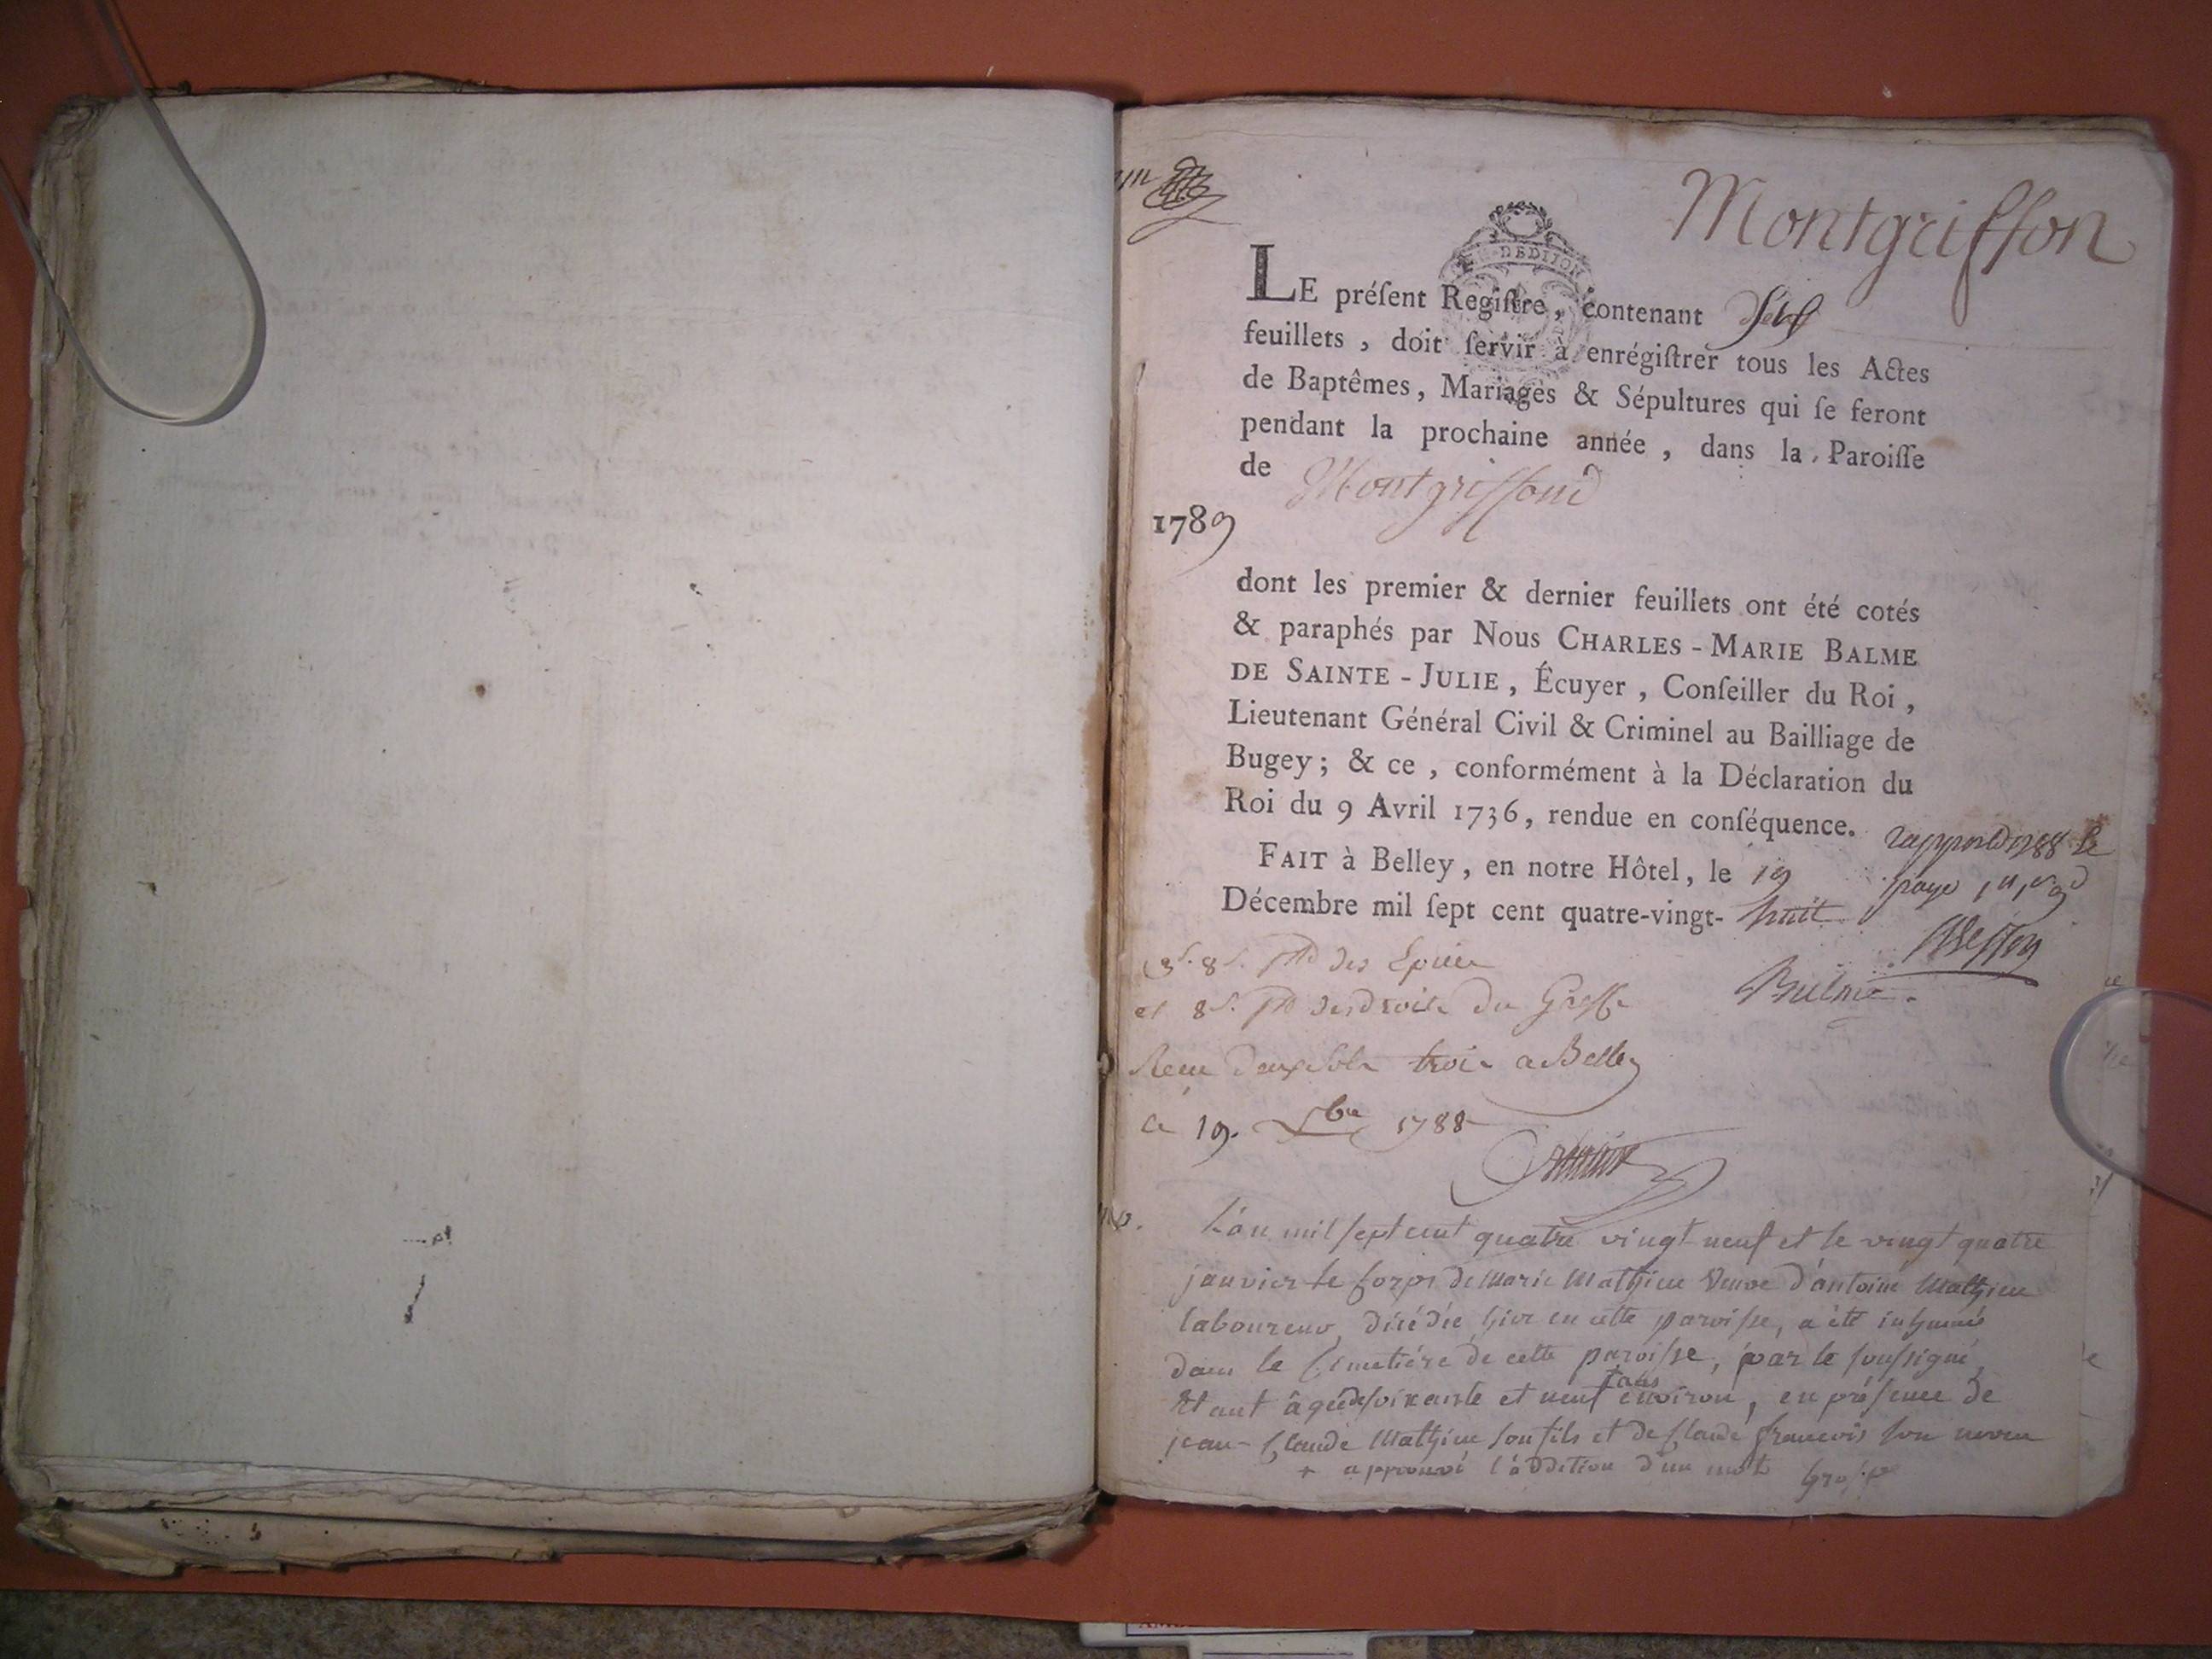 Montgriffon
DE DIJON
LE préſent Regiſtre, contenant
feuillets, doit ſervir à enrégiſtrer tous les Actes
de Baptêmes, Mariages & Sépultures qui ſe feront
pendant la prochaine année, dans la Paroiſſe
de Montgriffond
1789
dont les premier & dernier feuillets ont été cotés
& paraphés par Nous CHARLES-MARIE BALME
DE SAINTE-JULIE, Écuyer, Conſeiller du Roi,
Lieutenant Général Civil & Criminel au Bailliage de
Bugey; & ce, conformément à la Déclaration du
Roi du 9 Avril 1736, rendue en conſéquence.
FAIT à Belley, en notre Hôtel, le 19
Décembre mil ſept cent quatre-vingt-huit
Balme.
et 8s. des droits du Greffe
trois a Belley
1788
L'an mil sept cent quatre vingt neuf et le vingt quatre
janvier le corps de marie Mathieu veuve d'antoine Mathieu
laboureur, décédée hier en cette paroisse, a été inhumé
dans le Cimetiére de cette paroisse, par le soussigné,
Etant âgée de soixante et neuf +ans environ, en présence de
jean-Claude Mathieu son fils et de Claude françois son neveu
+ approuvé l'addition d'un mot